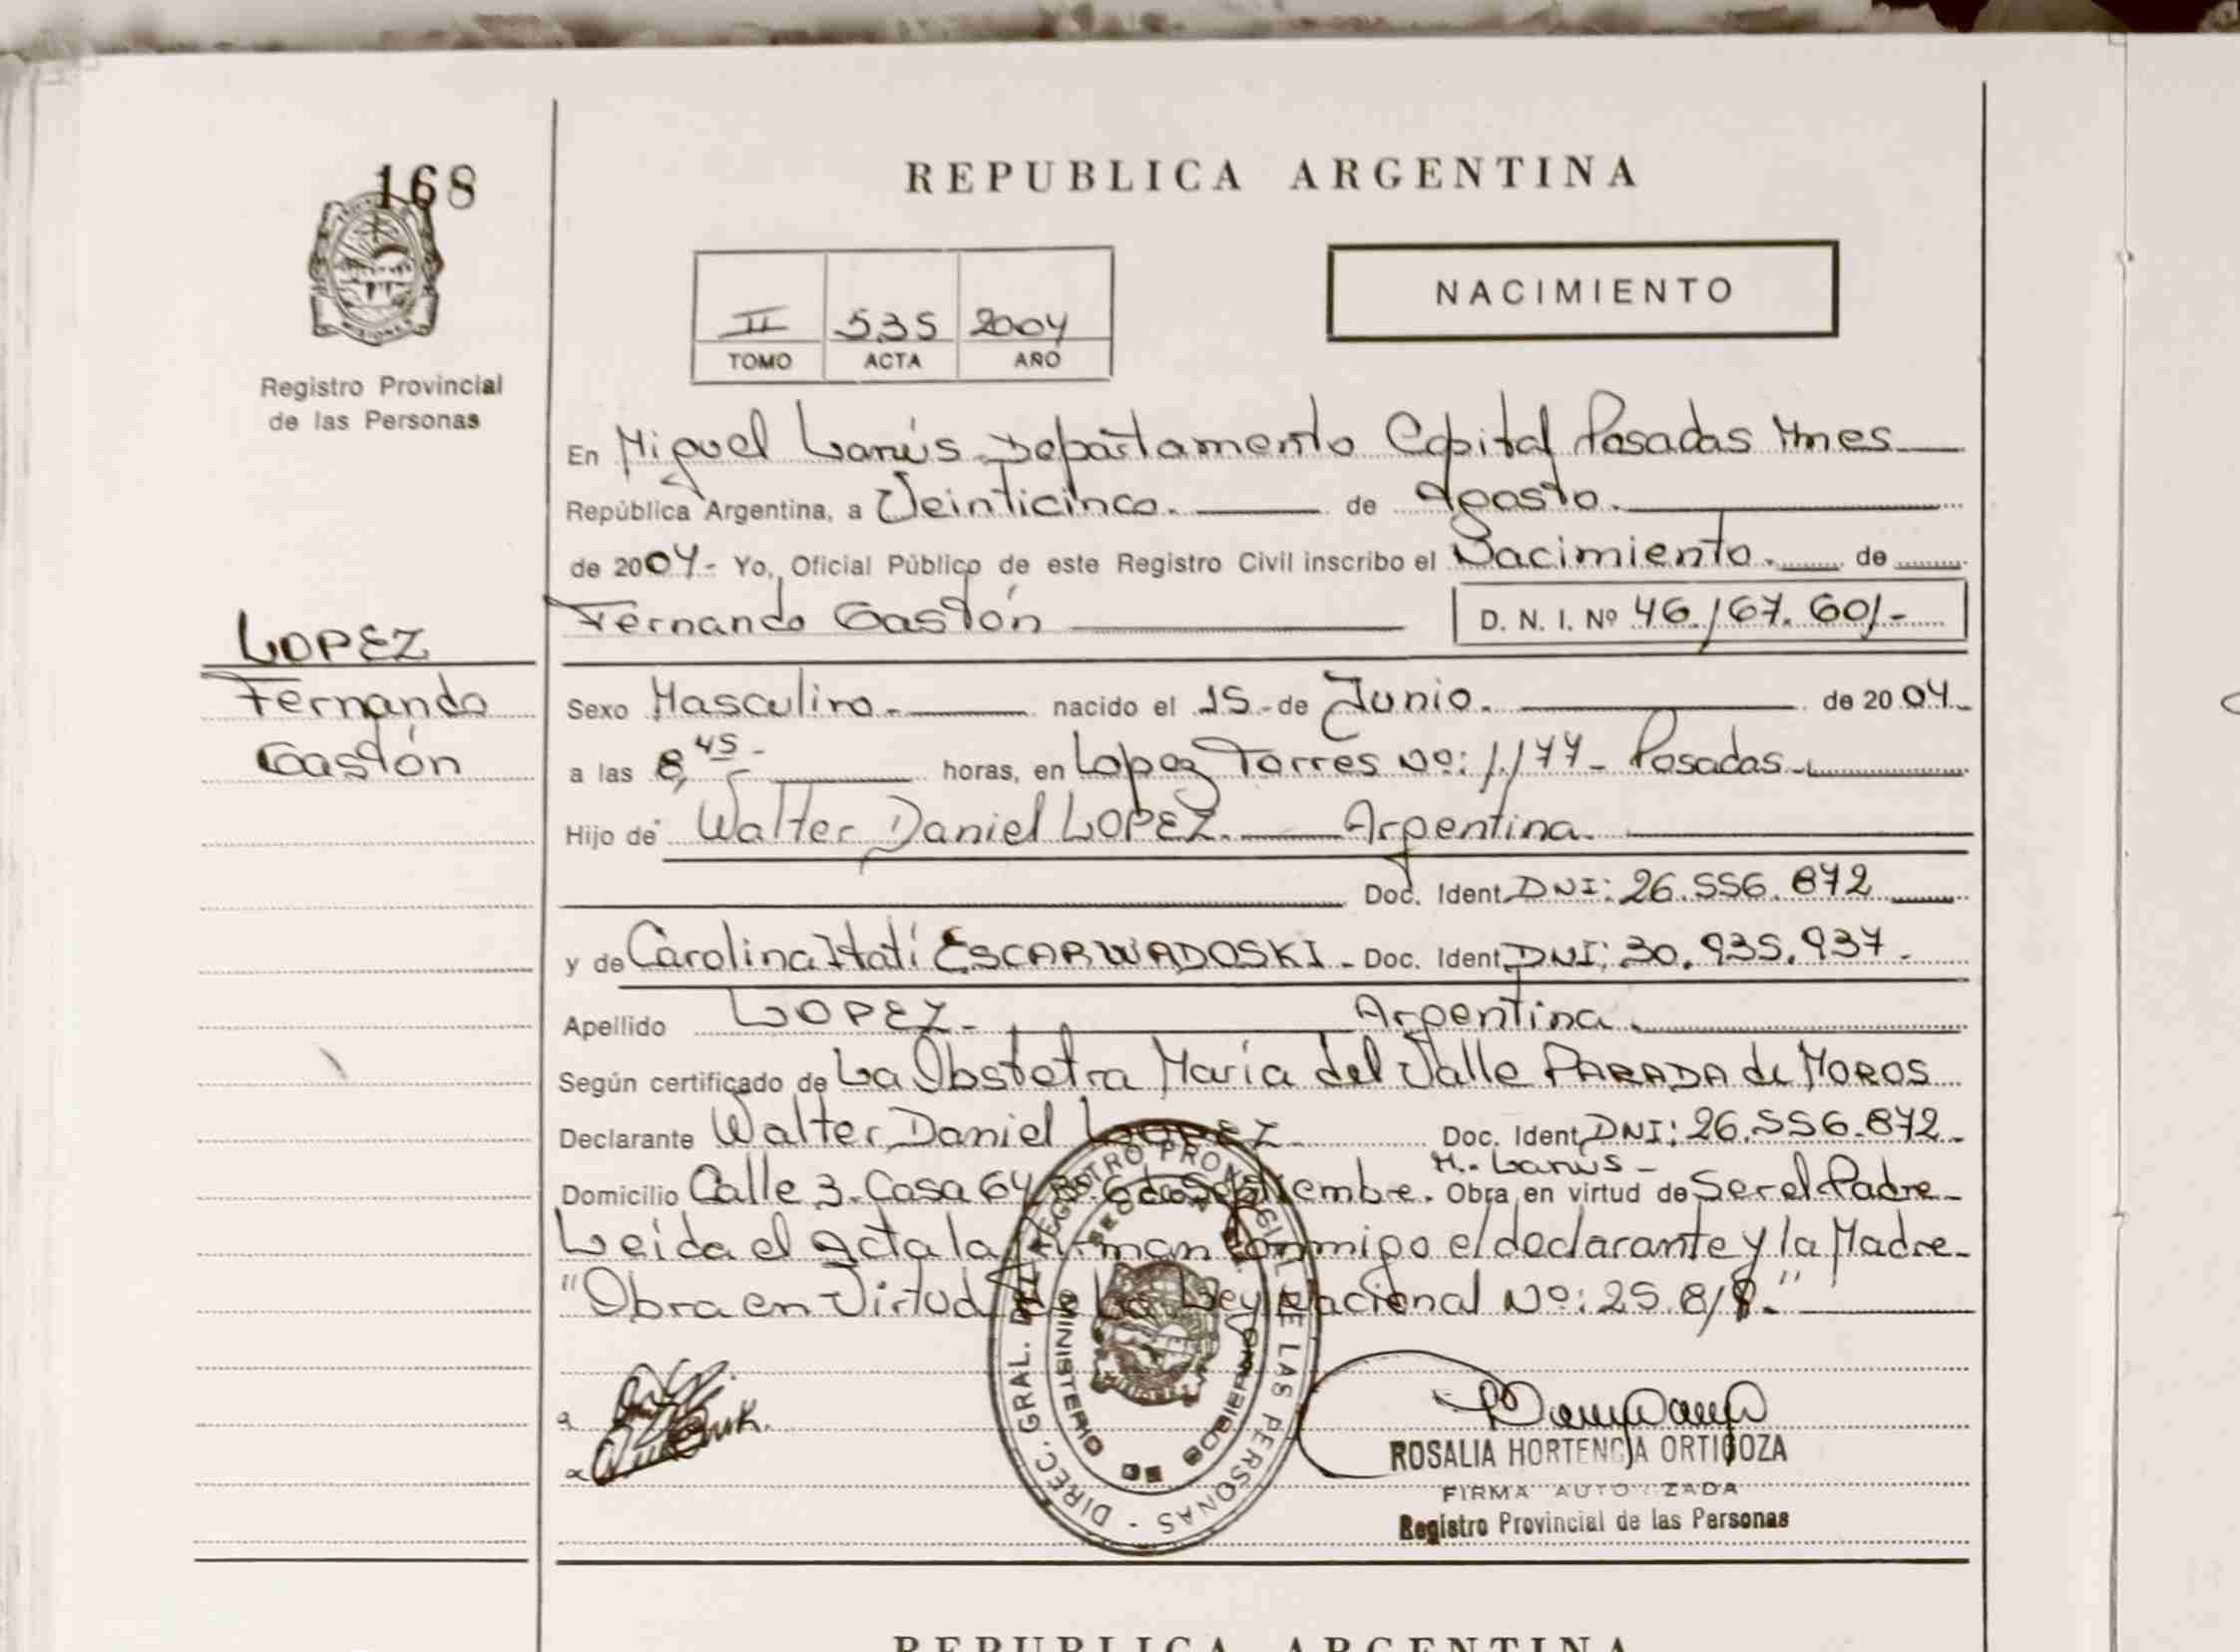 168
REPUBLICA ARGENTINA
NACIMIENTO
II 535 2004
TOMO ACTA AÑO
Registro Provincial
de las Personas
En Miguel Lanús Departamento Capital Posadas Mnes
República Argentina, a Veinticinco. de Agosto.
de 2004- Yo, Oficial Público de este Registro Civil inscribo el Nacimiento. de
Fernando Gastón D. N. I. Nº 46.167.601-
LOPEZ
Fernando
Gastón
Sexo Masculino. nacido el 15 de Junio. de 2004.
a las 8,45- horas, en Lopez Torres Nº: 1.177- Posadas.
Hijo de Walter Daniel LOPEZ. Argentina.
Doc. Ident. DNI: 26.556.872
y de Carolina Itatí ESCARWADOSKI. Doc. Ident. DNI: 30.935.937.
Apellido LOPEZ. Argentina.
Según certificado de La Obstetra María del Valle PARADA de MOROS
Declarante Walter Daniel LOPEZ Doc. Ident. DNI: 26.556.872.
M. Lanús-
Domicilio Calle 3. Casa 64 6 de Septiembre. Obra en virtud de Ser el Padre-
Leída el acta la firman conmigo el declarante y la Madre-
"Obra en Virtud de la Ley Nacional Nº: 25.818."
DIREC. GRAL. DEL REGISTRO PROVINCIAL DE LAS PERSONAS -
MINISTERIO DE GOBIERNO
MISIONES
ROSALIA HORTENCIA ORTIGOZA
FIRMA AUTORIZADA
Registro Provincial de las Personas
REPUBLICA ARGENTINA